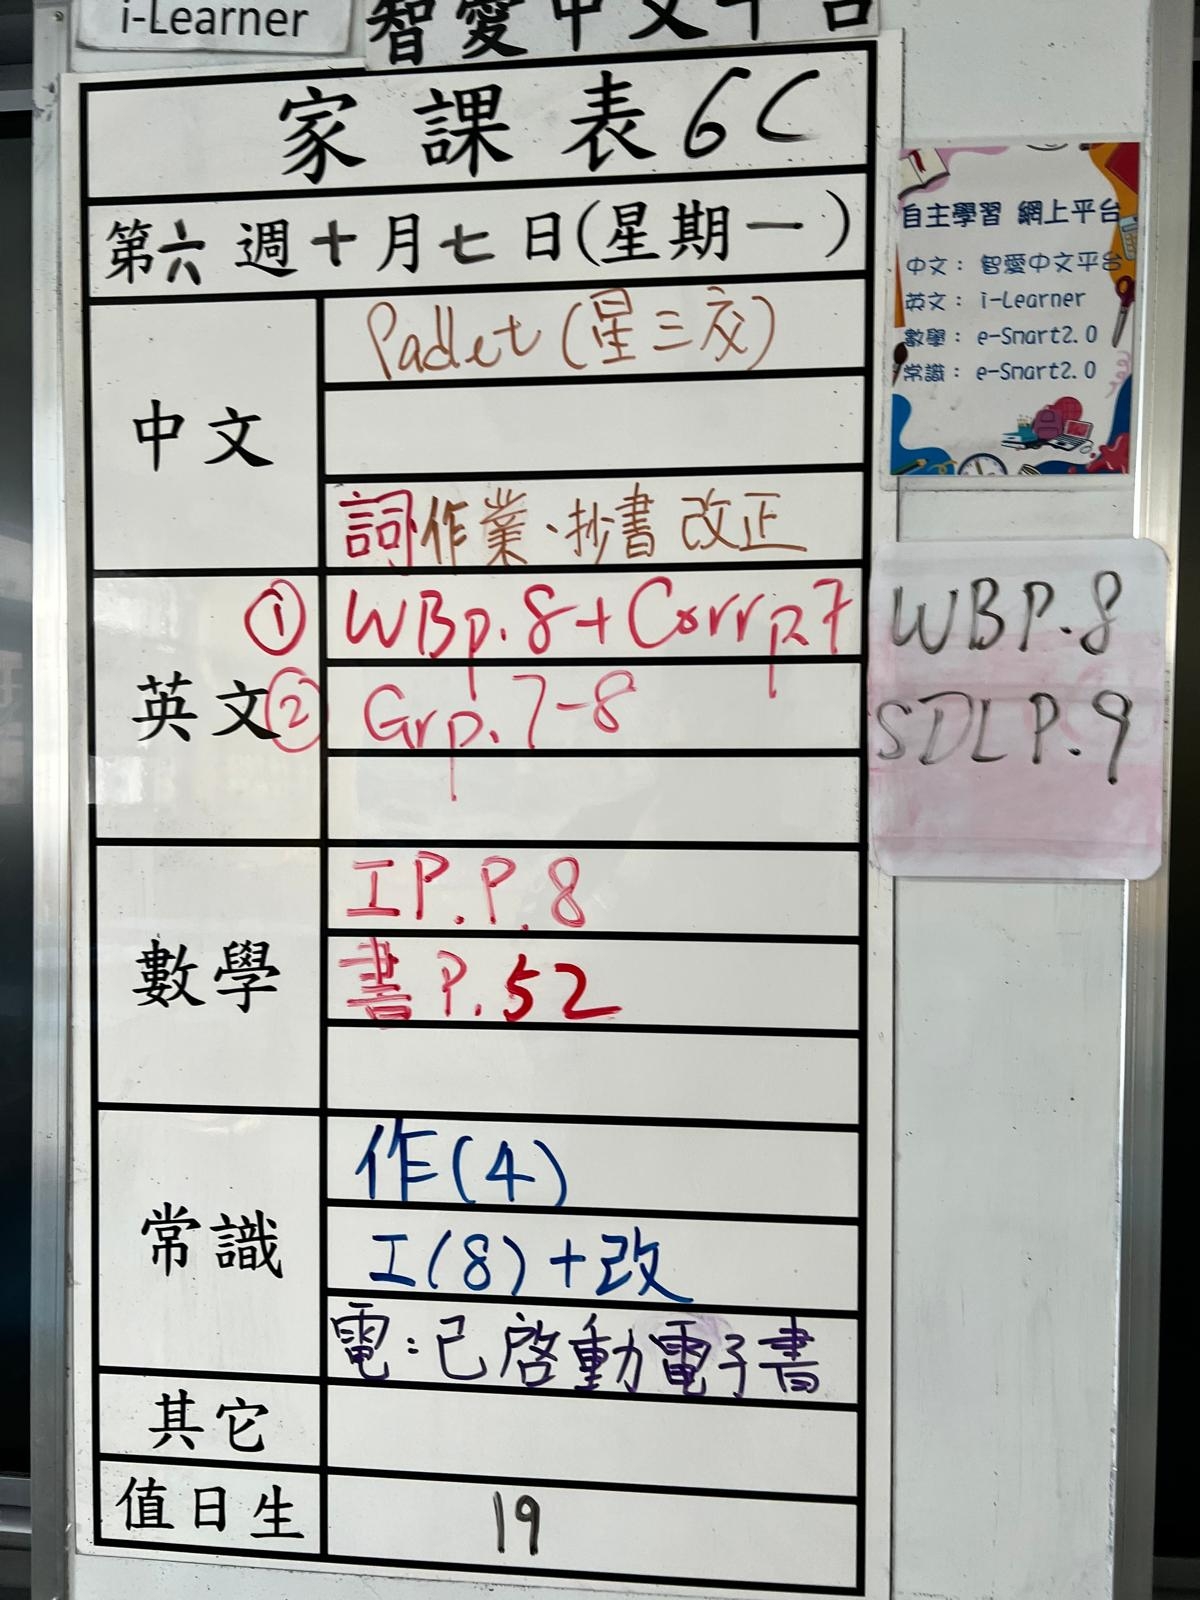 i-Learner
智愛中文平台
家課表 6C
第六週十月七日(星期一)
中文
Padlet (星三交)
詞作業、抄書 改正
英文
① WBp.8+Corr p.7
② Grp.7-8
數學
工P.P.8
書P.52
常識
作(4)
工(8)+改
電:已啓動電子書
其它
值日生
19
自主學習 網上平台
中文: 智愛中文平台
英文: i-Learner
數學: e-Smart2.0
常識: e-Smart2.0
WBP.8
SDLP.9